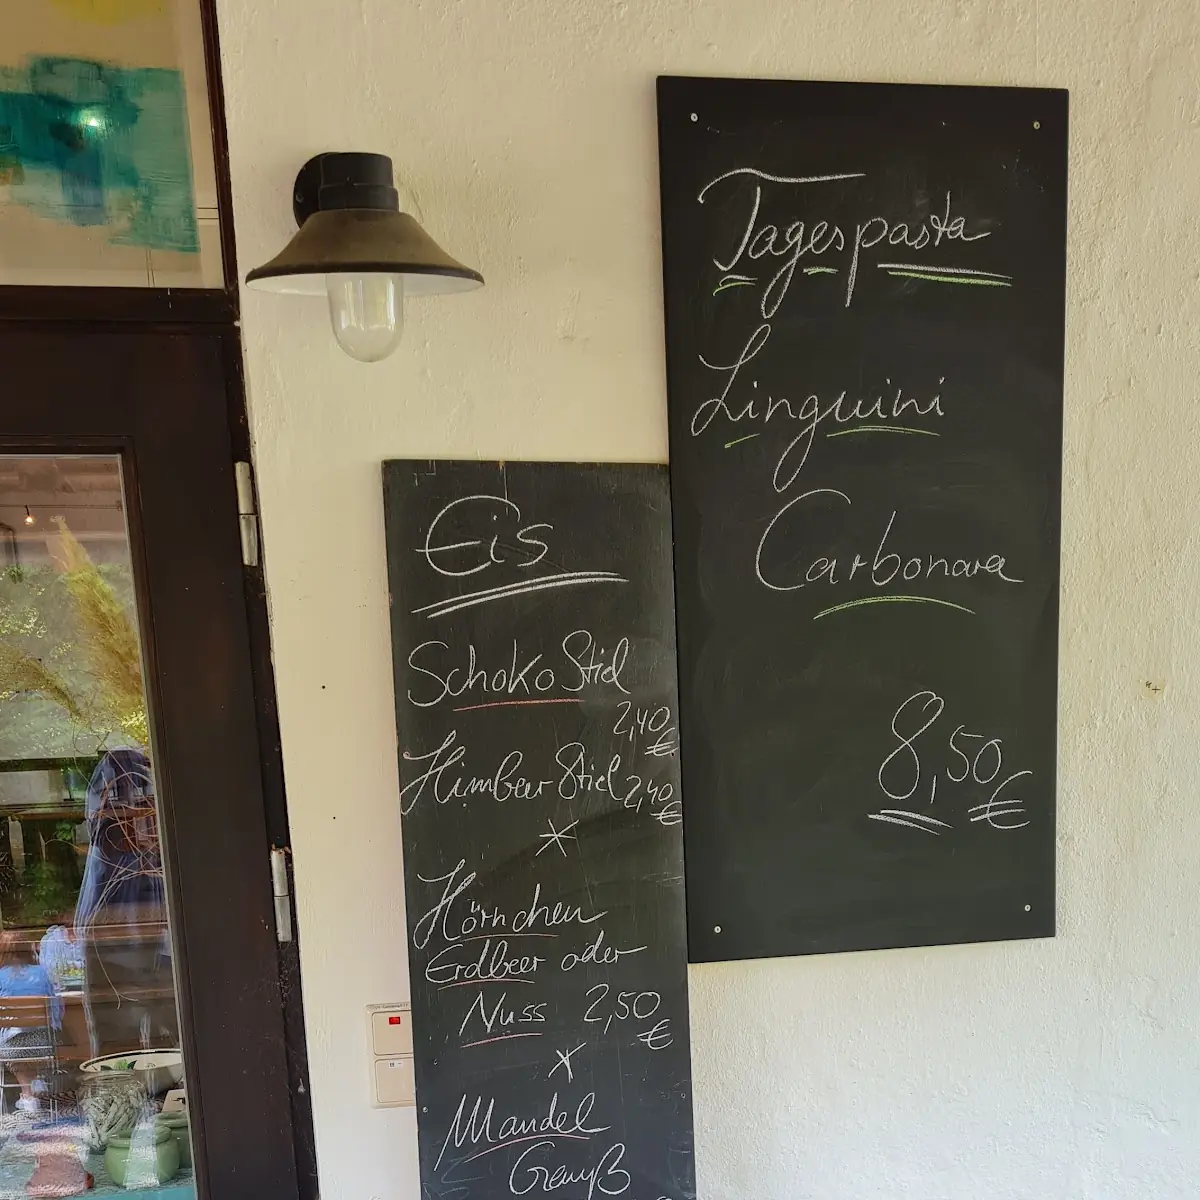 Tagespasta
Linguini
Carbonara
8,50
€
Eis
Schoko Stiel
2,40
€
Himbeer Stiel 2,40
€
Hörnchen
Erdbeer oder
Nuss 2,50
€
Mandel
Genuß